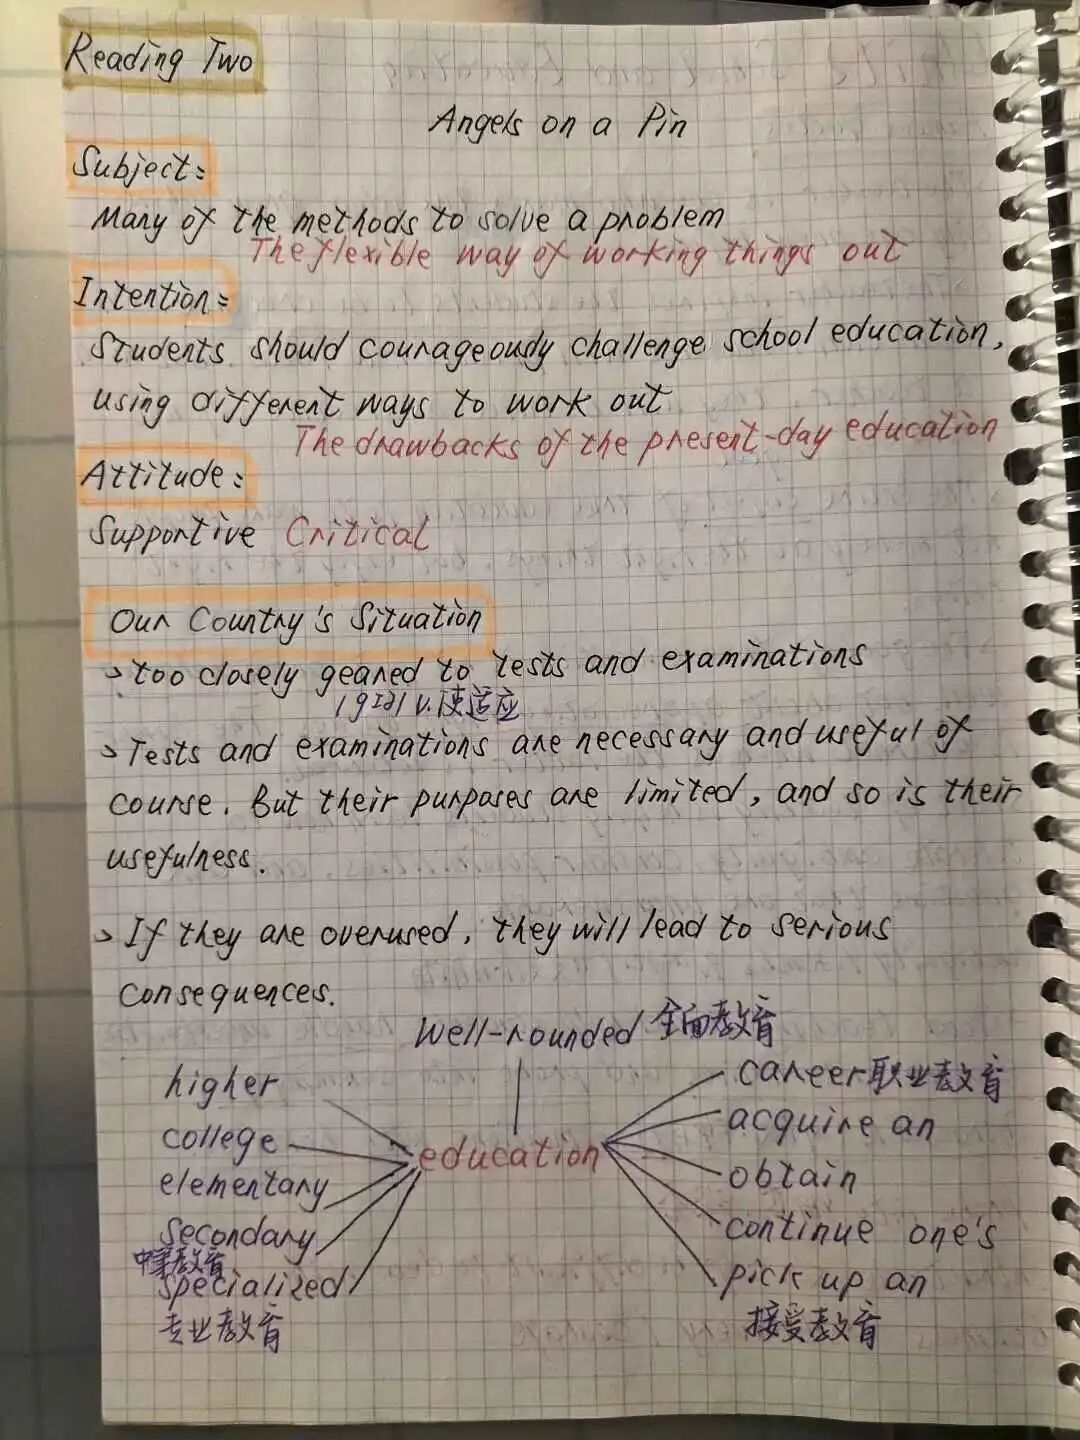 Reading Two
Angels on a Pin
Subject:
Many of the methods to solve a problem
The flexible way of working things out
Intention:
Students should courageously challenge school education,
using different ways to work out
The drawbacks of the present-day education
Attitude:
Supportive Critical
Our Country's Situation
> too closely geared to tests and examinations
v.使适应
> Tests and examinations are necessary and useful of
course. But their purposes are limited, and so is their
usefulness.
> If they are overused, they will lead to serious
consequences.
Well-rounded 全面教育
higher
college
elementary
secondary
中等教育
specialized
专业教育
education
career 职业教育
acquire an
obtain
continue one's
pick up an
接受教育